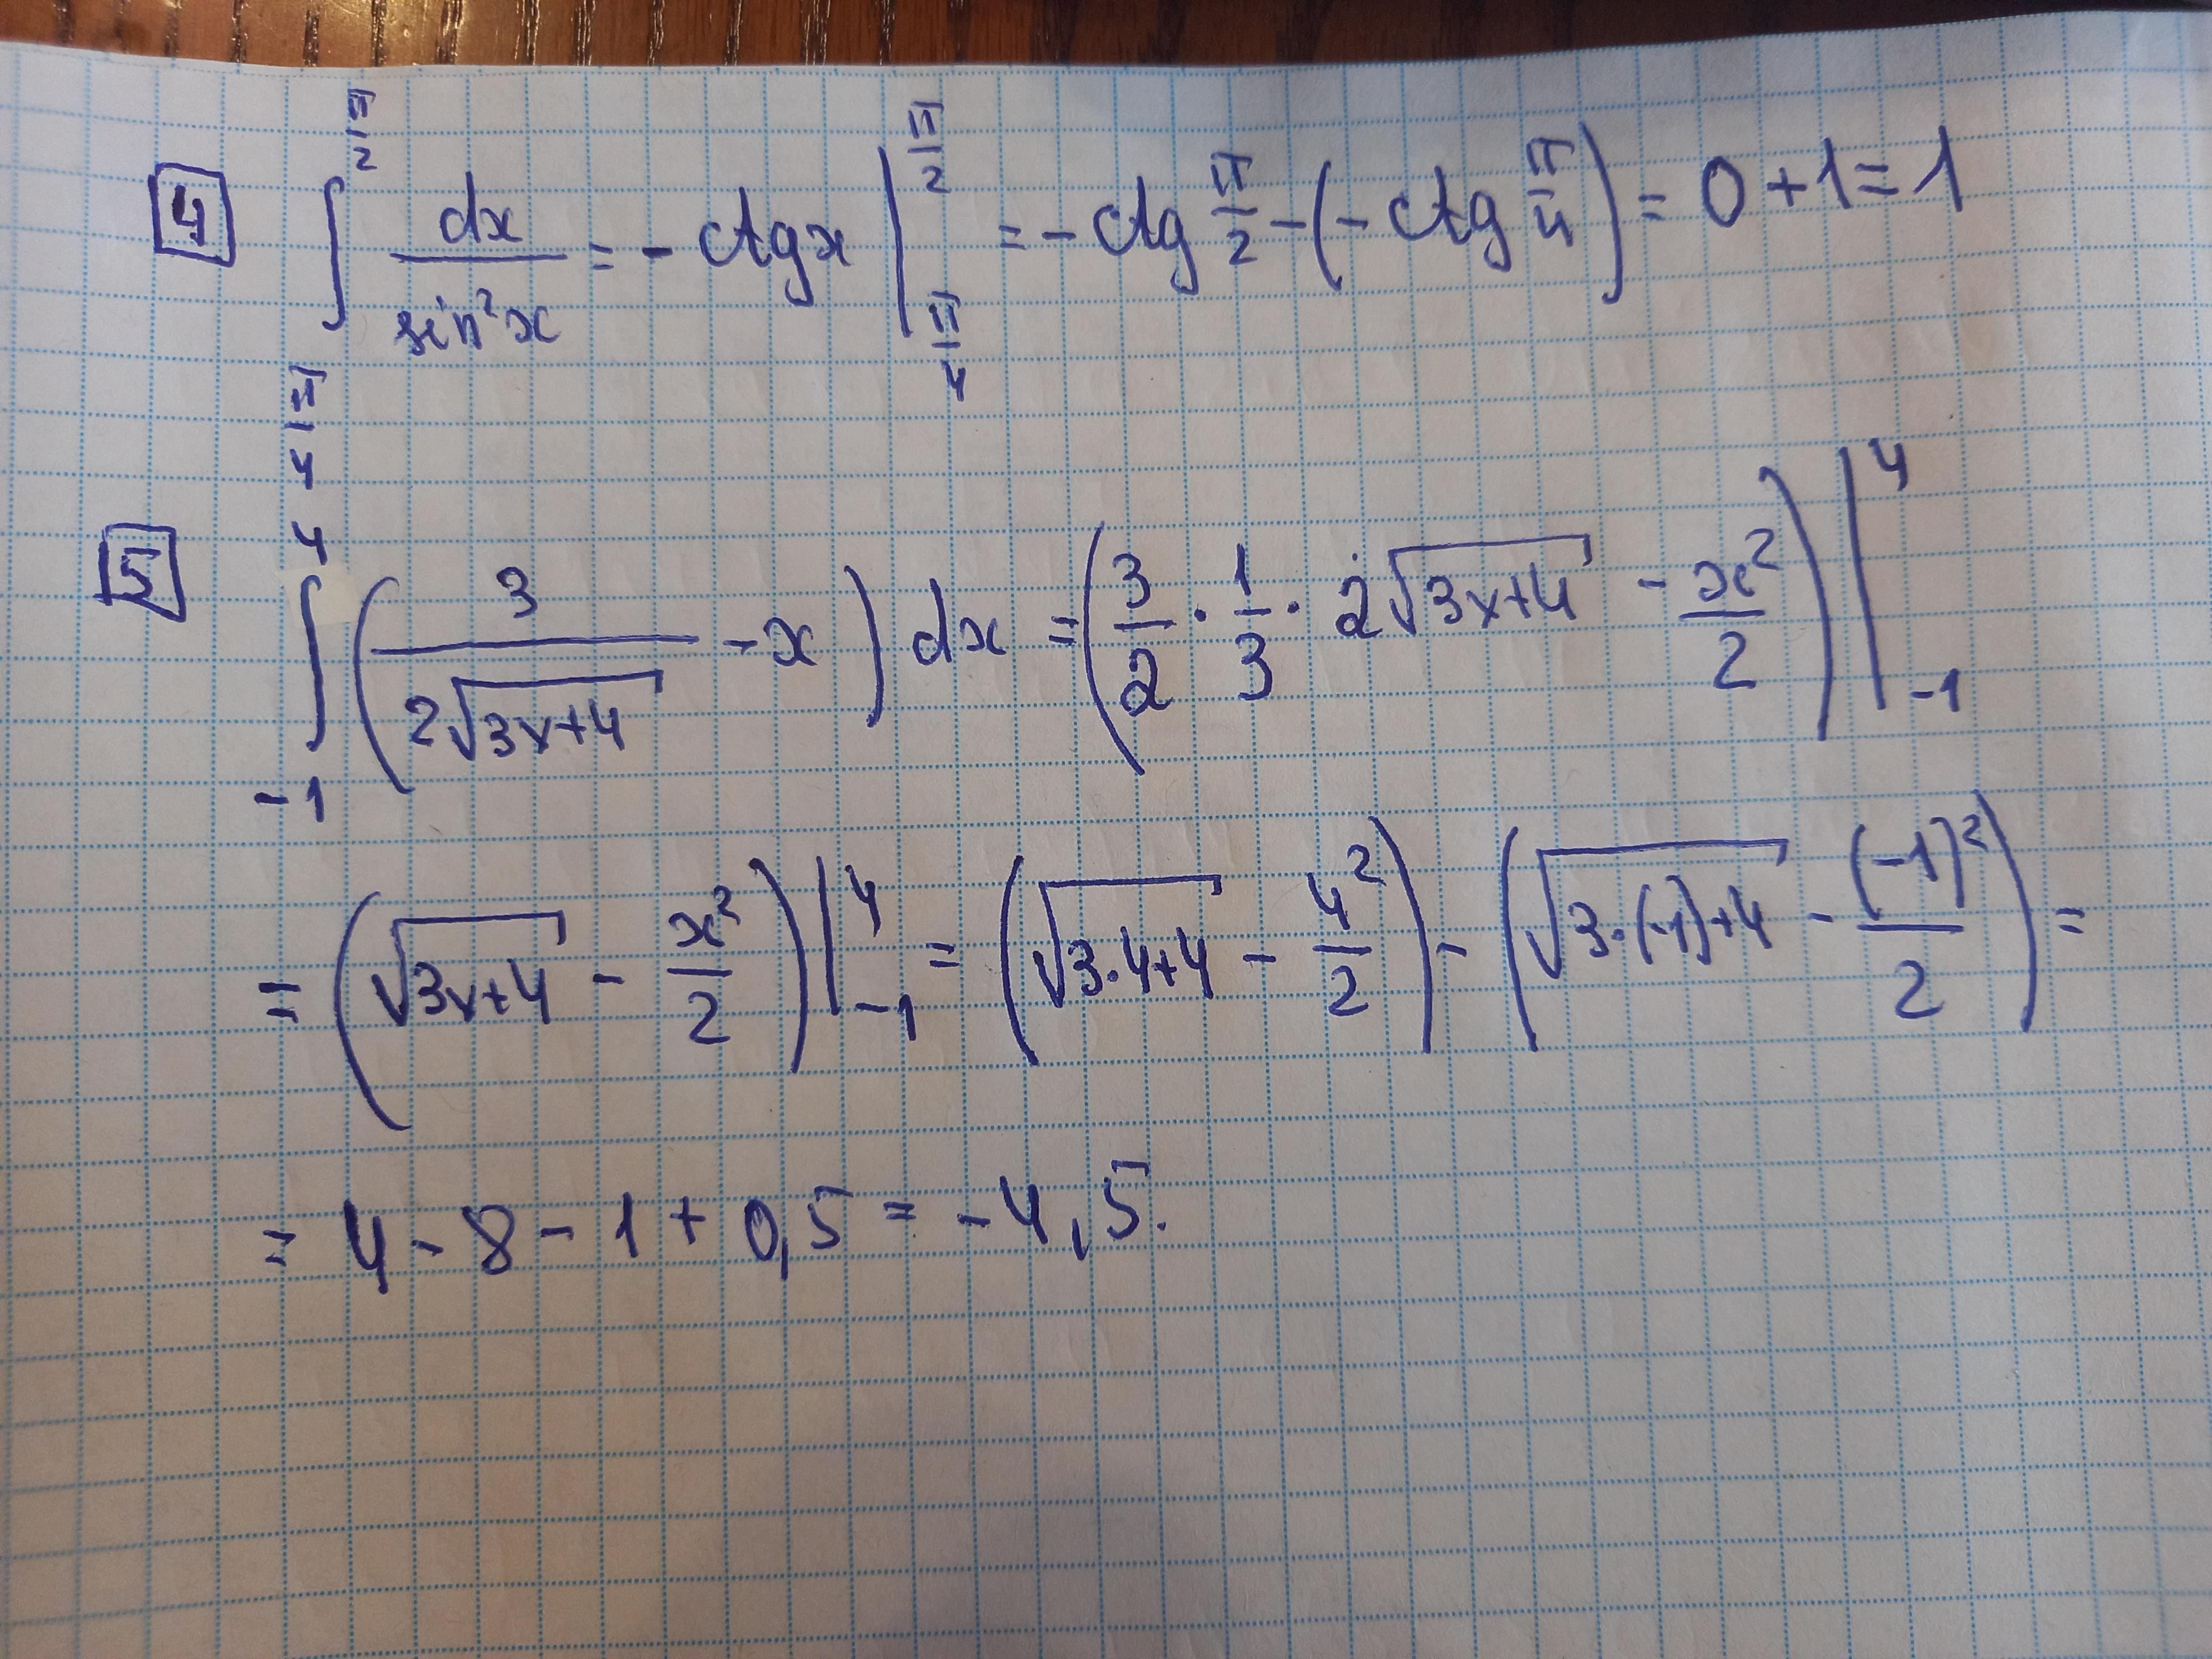 4 ∫_{π/4}^{π/2} dx/sin²x = - ctgx |_{π/4}^{π/2} = - ctg π/2 - (- ctg π/4) = 0 + 1 = 1
5 ∫_{-1}^{4} (3/(2√(3x+4)) - x) dx = (3/2 · 1/3 · 2√(3x+4) - x²/2) |_{-1}^{4}
= (√(3x+4) - x²/2) |_{-1}^{4} = (√(3·4+4) - 4²/2) - (√(3·(-1)+4) - (-1)²/2) =
= 4 - 8 - 1 + 0,5 = -4,5.